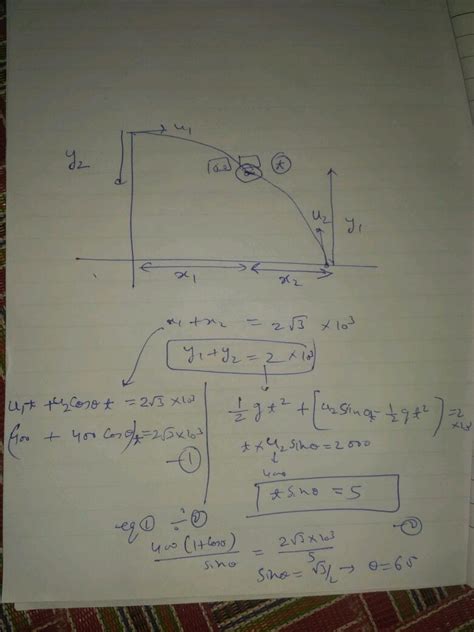 u₁
y₂
t
u₂
y₁
x₁
x₂
x₁ + x₂ = 2√3 × 10³
y₁ + y₂ = 2 × 10³
u₁t + u₂cosθt = 2√3 × 10³
(400 + 400 cosθ)t = 2√3 × 10³
①
½gt² + [u₂sinθt - ½gt²] = 2 × 10³
t × u₂ sinθ = 2000
400
t sinθ = 5
②
eq ① ÷ ②
400(1+cosθ) / sinθ = 2√3 × 10³ / 5
sinθ = √3/2 → θ = 60